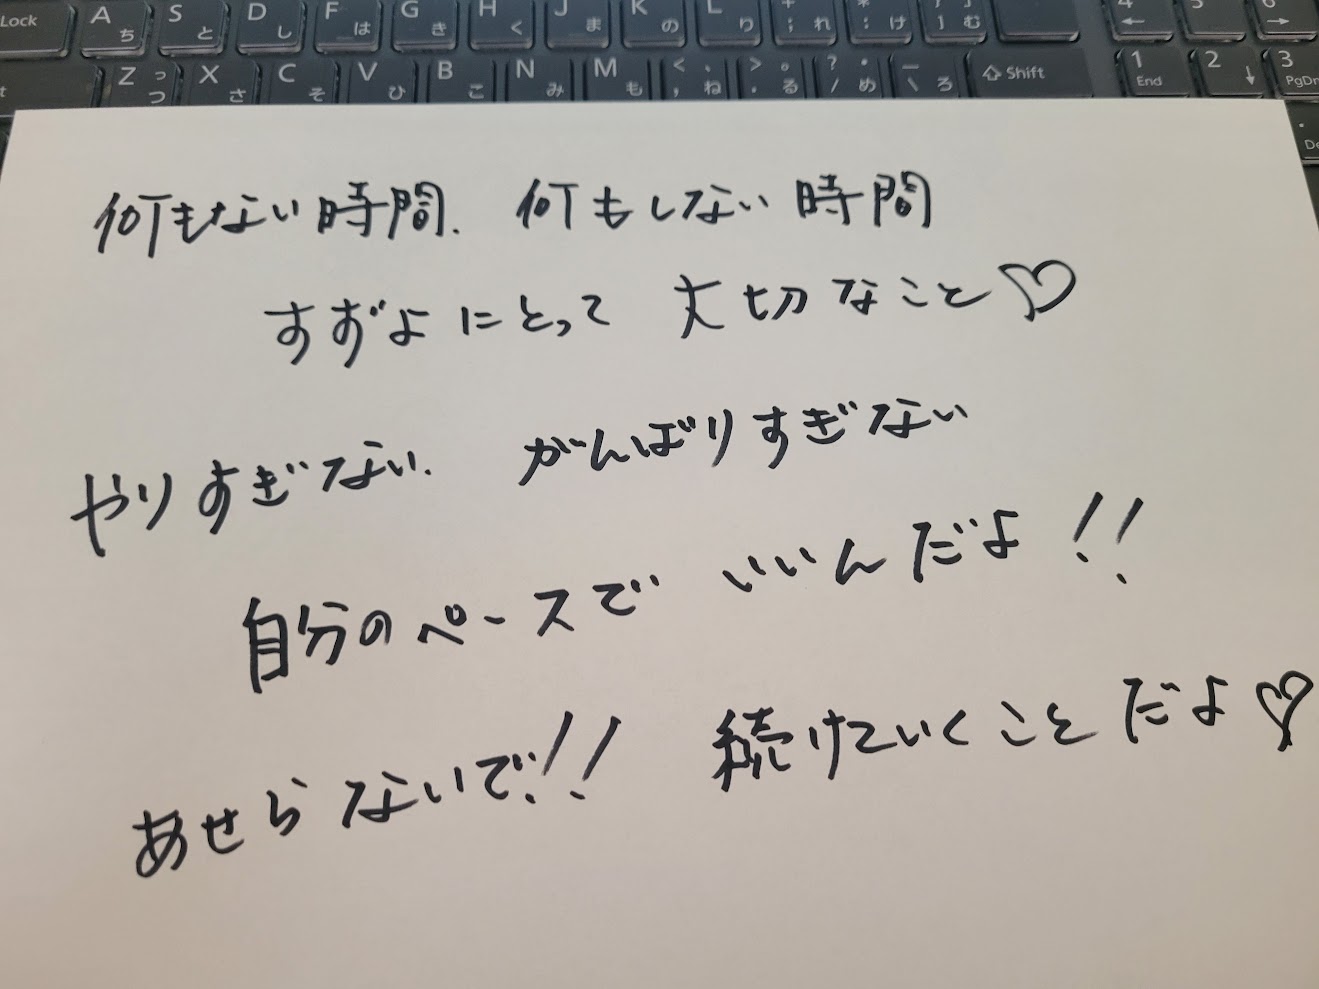 Lock A ち S と D し F は G き H く J ま K の L り + ; れ * : け } ] む F 4 ← 5 6 →
Z っ つ X さ C そ V ひ B こ N み M も < 、 , ね > 。 . る ? ・ / め _ \ ろ ⇧ Shift 1 End 2 ↓ 3 PgDn
何もない時間. 何もしない時間
すずよにとって 大切なこと♡
やりすぎない. がんばりすぎない
自分のペースで いいんだよ!!
あせらないで!! 続けていくことだよ♡